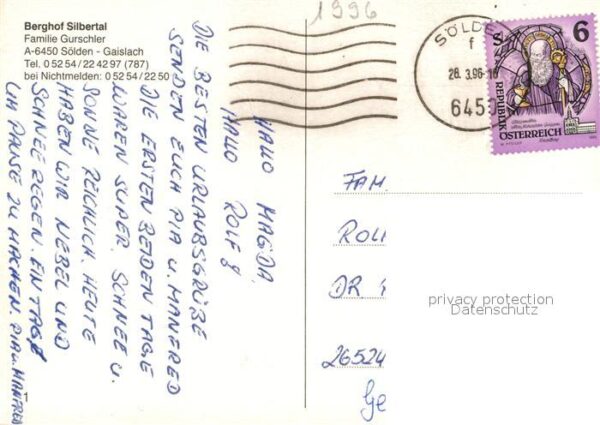 1996
Berghof Silbertal
Familie Gurschler
A-6450 Sölden - Gaislach
Tel. 0 52 54 / 22 42 97 (787)
bei Nichtmelden: 0 52 54 / 22 50
SÖLDE
f
26.3.96-16
645
6
S
REPUBLIK
ÖSTERREICH
HALLO MAGDA,
HALLO ROLF &
DIE BESTEN URLAUBSGRÜßE
SENDEN EUCH PIA U. MANFRED
DIE ERSTEN BEIDEN TAGE
WAREN SUPER. SCHNEE U.
SONNE REICHLICH. HEUTE
HABEN WIR NEBEL UND
SCHNEEREGEN. EIN TAG
UM PAUSE ZU MACHEN. PIA U. MANFRED
FAM.
ROL
DR.
26524
Ge
privacy protection
Datenschutz